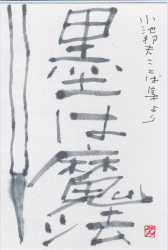 小池邦夫ことば集より
墨は魔法